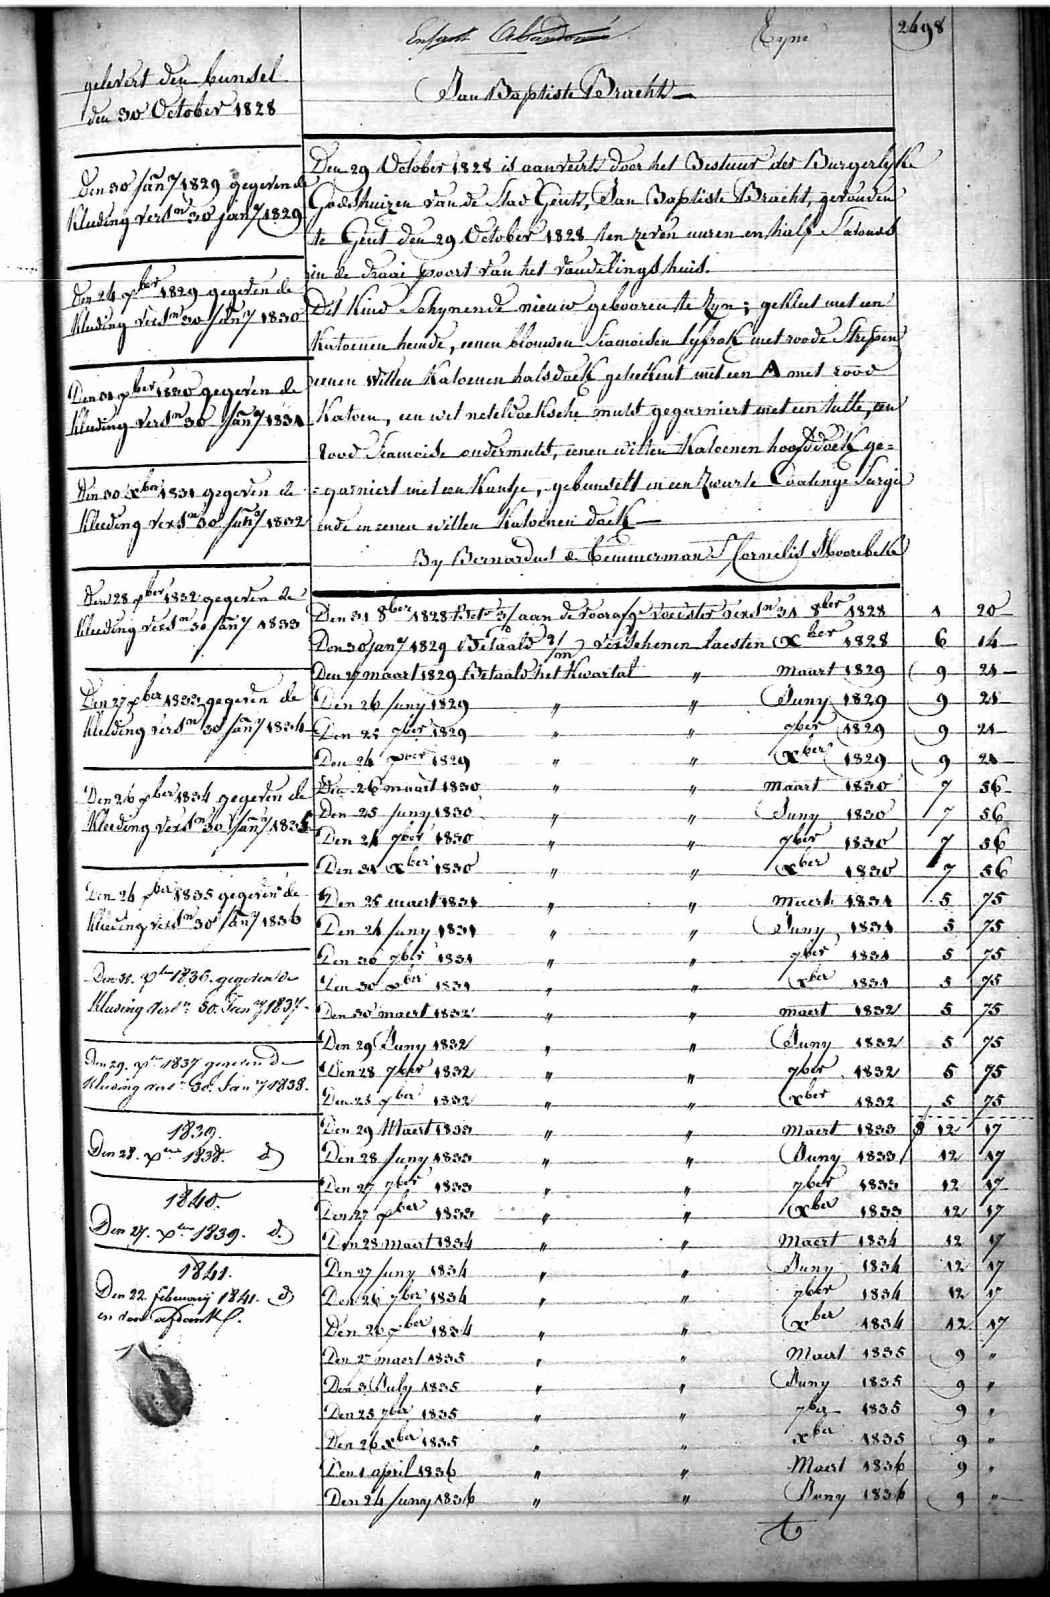 Enfant Abandonné Eyne 2498
Jan Baptiste Bracht
gelevert den bunsel
den 30 October 1828
Den 30 Jan⁷ 1829 gegeven de
Kleding vers^n 30 jan⁷ 1829
Den 24 xber 1829 gegeven de
Kleding vers^n 30 Jan⁷ 1830
Den 31 xber 1830 gegeven de
Kleeding vers^n 30 Jan⁷ 1831
Den 30 xber 1831 gegeven de
Kleeding vers^n 30 Jan⁷ 1832
Den 28 xber 1832 gegeven de
Kleeding vers^n 30 Jan⁷ 1833
Den 27 xber 1833 gegeven de
Kleeding vers^n 30 Jan⁷ 1834
Den 26 xber 1834 gegeven de
Kleeding vers^n 30 Jan⁷ 1835
Den 26 xber 1835 gegeven de
Kleeding vers^n 30 Jan⁷ 1836
Den 31. xber 1836. gegeven de
Kleding vers^n 30. Jan⁷ 1837
Den 29. xber 1837 gegeven de
Kleding vers^n 30. Jan⁷ 1838.
1839.
Den 28. xber 1838. d°
1840.
Den 27. xber 1839. d°
1841.
Den 22. februarij 1841. d°
en van
Den 29 October 1828 is aanveirt door het Bestuur der Burgerlyke
Godshuizen van de Stad Gent, Jan Baptiste Bracht, gevonden
te Gent den 29 October 1828 ten zeven uuren en half 'savonds
in de draai poort van het vondelingshuis.
Dit Kind Schynende nieuw gebooren te zyn; gekleet met een
Katoenen hemde, eenen blouwen Siamoisen lyfrok met roode Strepen
eenen Witten Katoenen halsdoek geteekent met een A met rood
Katoen, een wit neteldoeksche muts gegarniert met een tulle, een
rood Siamoise ondermuts, eenen witten Katoenen hoofddoek ge=
=garniert met een Kantje, gebunselt in een Zwarte Sargie
ende in eenen witten Katoenen doek
By Bernardus de Temmerman Cornelis Moorebeke
Den 31 8ber 1828 Bet^n aan de voedster vers^n 31 8ber 1828 1 20
Den 30 jan⁷ 1829 Betaald 2/m verschenen laesten xber 1828 6 14
Den 27 maart 1829 Betaald het Kwartal " Maart 1829 9 21
Den 26 Juny 1829 " " Juny 1829 9 21
Den 25 7ber 1829 " " 7ber 1829 9 21
Den 24 xber 1829 " " xber 1829 9 21
Den 26 maart 1830 " " Maart 1830 7 56
Den 25 Juny 1830 " " Juny 1830 7 56
Den 24 7ber 1830 " " 7ber 1830 7 56
Den 31 xber 1830 " " xber 1830 7 56
Den 25 maert 1831 " " Maert 1831 5 75
Den 24 Juny 1831 " " Juny 1831 5 75
Den 30 7ber 1831 " " 7ber 1831 5 75
Den 30 xber 1831 " " xber 1831 5 75
Den 30 maert 1832 " " maert 1832 5 75
Den 29 Juny 1832 " " Juny 1832 5 75
Den 28 7ber 1832 " " 7ber 1832 5 75
Den 28 xber 1832 " " xber 1832 5 75
Den 29 Maert 1833 " " Maert 1833 12 17
Den 28 Juny 1833 " " Juny 1833 12 17
Den 27 7ber 1833 " " 7ber 1833 12 17
Den 27 xber 1833 " " xber 1833 12 17
Den 28 maert 1834 " " Maert 1834 12 17
Den 27 Juny 1834 " " Juny 1834 12 17
Den 26 7ber 1834 " " 7ber 1834 12 17
Den 26 xber 1834 " " xber 1834 12 17
Den 27 maert 1835 " " Maert 1835 9 "
Den 3 July 1835 " " Juny 1835 9 "
Den 25 7ber 1835 " " 7ber 1835 9 "
Den 26 xber 1835 " " xber 1835 9 "
Den 1 april 1836 " " Maert 1836 9 "
Den 24 Juny 1836 " " Juny 1836 9 "